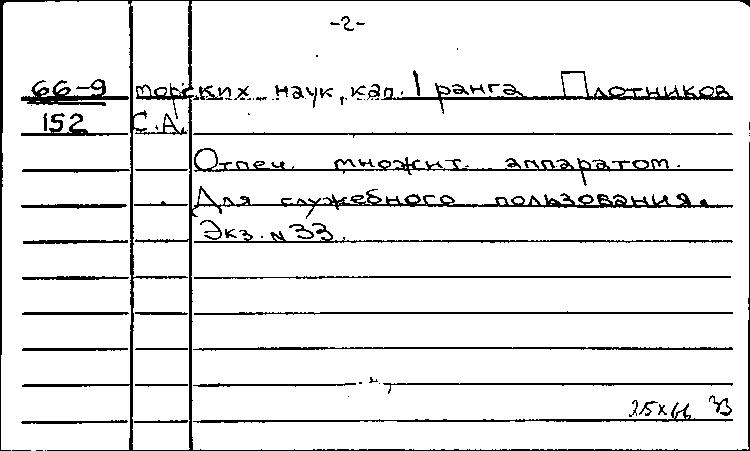 -2-
66-9 торских наук, кап. 1 ранга Плотников
152 С.А.
Отпеч. множит. аппаратом.
Для служебного пользования.
Экз. N 33.
25х66 33